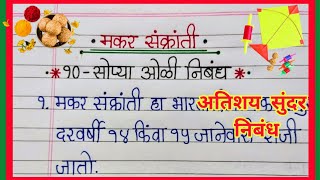 मकर संक्रांती
* १०-सोप्या ओळी निबंध *
१. मकर संक्रांती हा
दरवर्षी १४ किंवा १५
जातो.
अतिशय सुंदर
निबंध